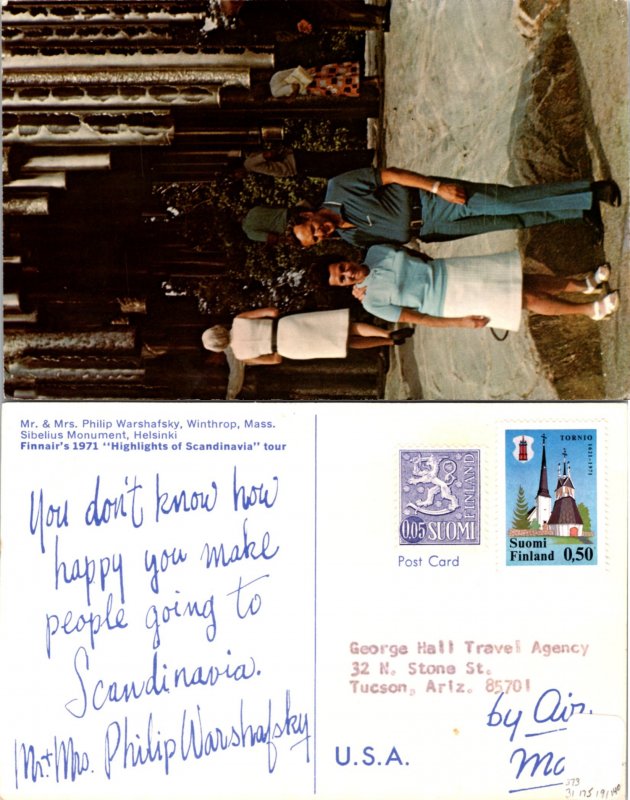 Mr. & Mrs. Philip Warshafsky, Winthrop, Mass.
Sibelius Monument, Helsinki
Finnair's 1971 "Highlights of Scandinavia" tour
You don't know how
happy you make
people going to
Scandinavia.
Mr + Mrs. Philip Warshafsky
FINLAND
0.05 SUOMI
Post Card
TORNIO
1621-1971
Suomi
Finland 0,50
George Hall Travel Agency
32 N. Stone St.
Tucson, Ariz. 85701
by Air
U.S.A.